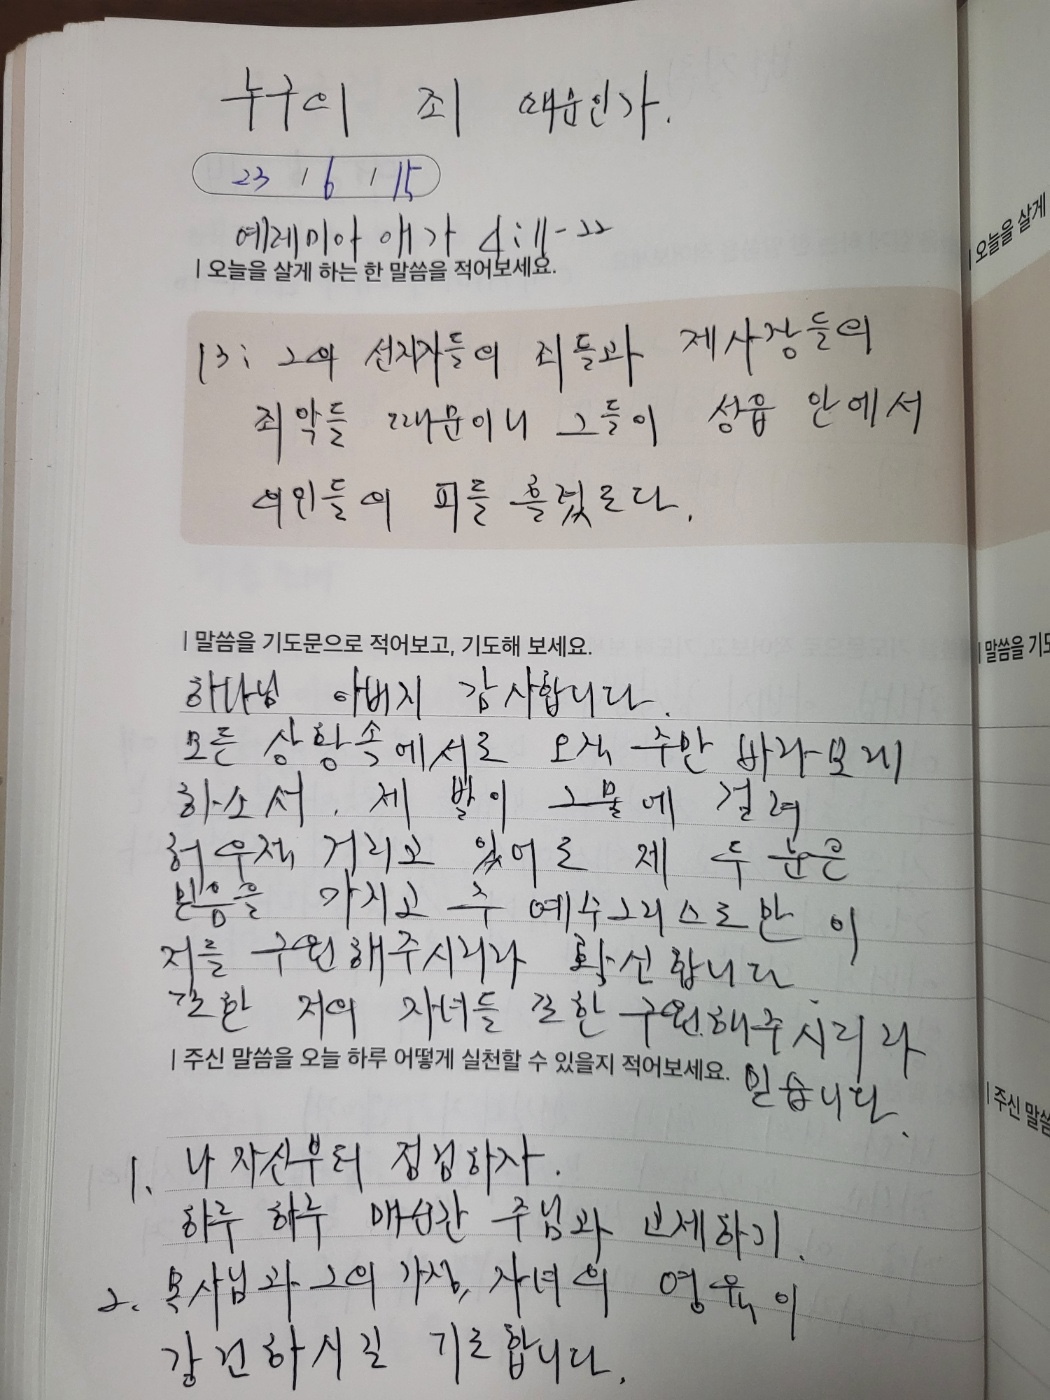 누구의 죄 때문인가.
23 / 6 / 15
예레미야 애가 4:11-22
| 오늘을 살게 하는 한 말씀을 적어보세요.
13: 그의 선지자들의 죄들과 제사장들의
죄악들 때문이니 그들이 성읍 안에서
의인들의 피를 흘렸도다.
| 말씀을 기도문으로 적어보고, 기도해 보세요.
하나님 아버지 감사합니다.
모든 상황속에서도 오직 주만 바라보게
하소서. 제 발이 그물에 걸려
허우적 거리고 있어도 제 두 눈은
믿음을 가지고 주 예수그리스도만 이
저를 구원해주시리라 확신합니다.
또한 저의 자녀들 또한 구원해주시리라
믿습니다.
| 주신 말씀을 오늘 하루 어떻게 실천할 수 있을지 적어보세요.
1. 나 자신부터 점검하자.
하루 하루 매순간 주님과 교제하기.
2. 목사님과 그의 가정, 자녀의 영육이
강건하시길 기도합니다.
| 오늘을 살게
| 말씀을 기도
| 주신 말씀